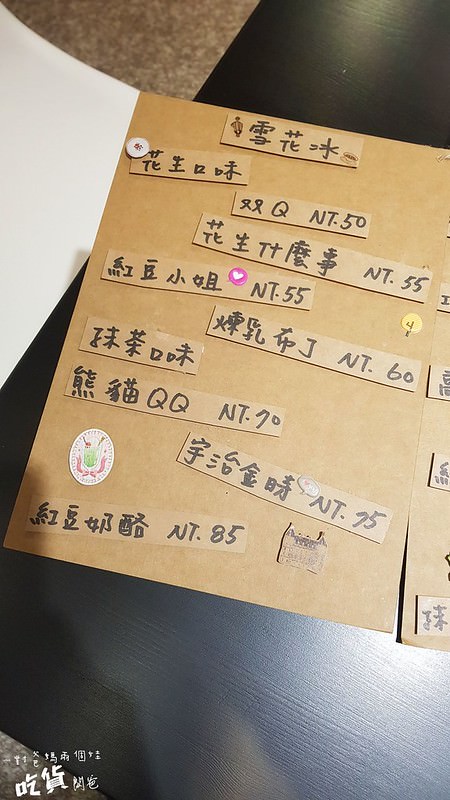 雪花冰
花生口味
双Q NT.50
花生什麼事 NT.55
紅豆小姐 NT.55
煉乳布丁 NT.60
抹茶口味
熊貓QQ NT.70
宇治金時 NT.75
紅豆奶酪 NT.85
一對爸媽兩個娃
吃貨